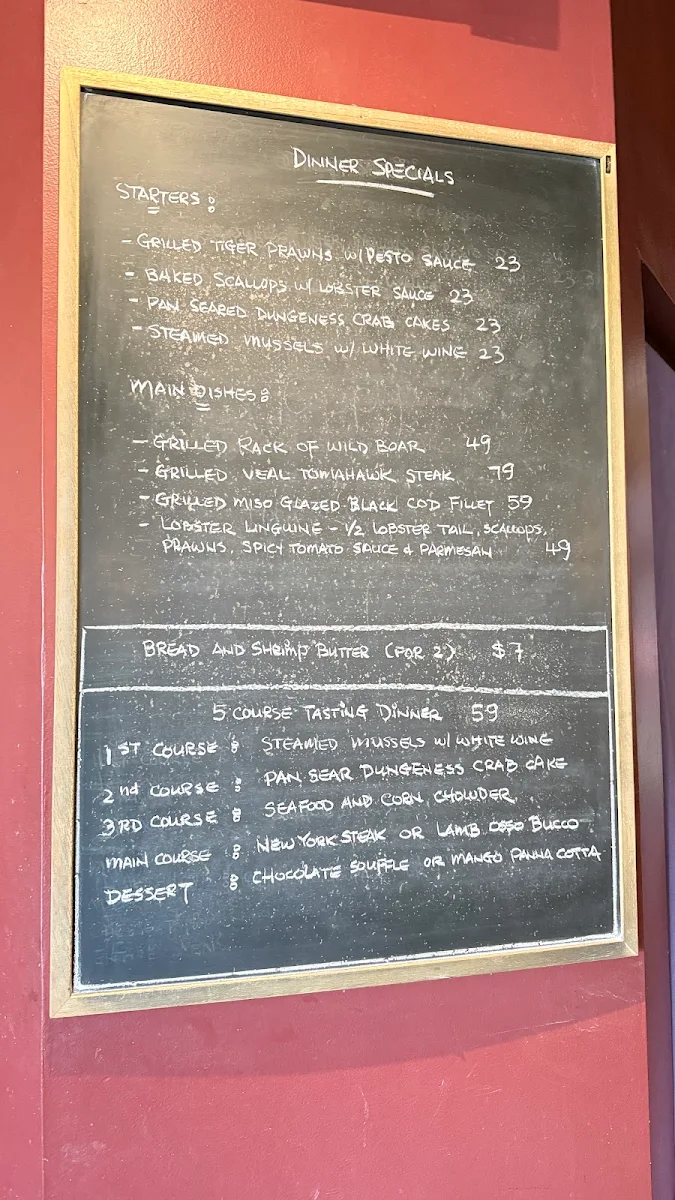 DINNER SPECIALS
STARTERS :
- GRILLED TIGER PRAWNS W/ PESTO SAUCE 23
- BAKED SCALLOPS W/ LOBSTER SAUCE 23
- PAN SEARED DUNGENESS CRAB CAKES 23
- STEAMED MUSSELS W/ WHITE WINE 23
MAIN DISHES :
- GRILLED RACK OF WILD BOAR 49
- GRILLED VEAL TOMAHAWK STEAK 79
- GRILLED MISO GLAZED BLACK COD FILLET 59
- LOBSTER LINGUINE - 1/2 LOBSTER TAIL, SCALLOPS,
PRAWNS, SPICY TOMATO SAUCE & PARMESAN 49
BREAD AND SHRIMP BUTTER (FOR 2) $7
5 COURSE TASTING DINNER 59
1ST COURSE : STEAMED MUSSELS W/ WHITE WINE
2nd COURSE : PAN SEAR DUNGENESS CRAB CAKE
3RD COURSE : SEAFOOD AND CORN CHOWDER
MAIN COURSE : NEW YORK STEAK OR LAMB OSSO BUCCO
DESSERT : CHOCOLATE SOUFFLE OR MANGO PANNA COTTA